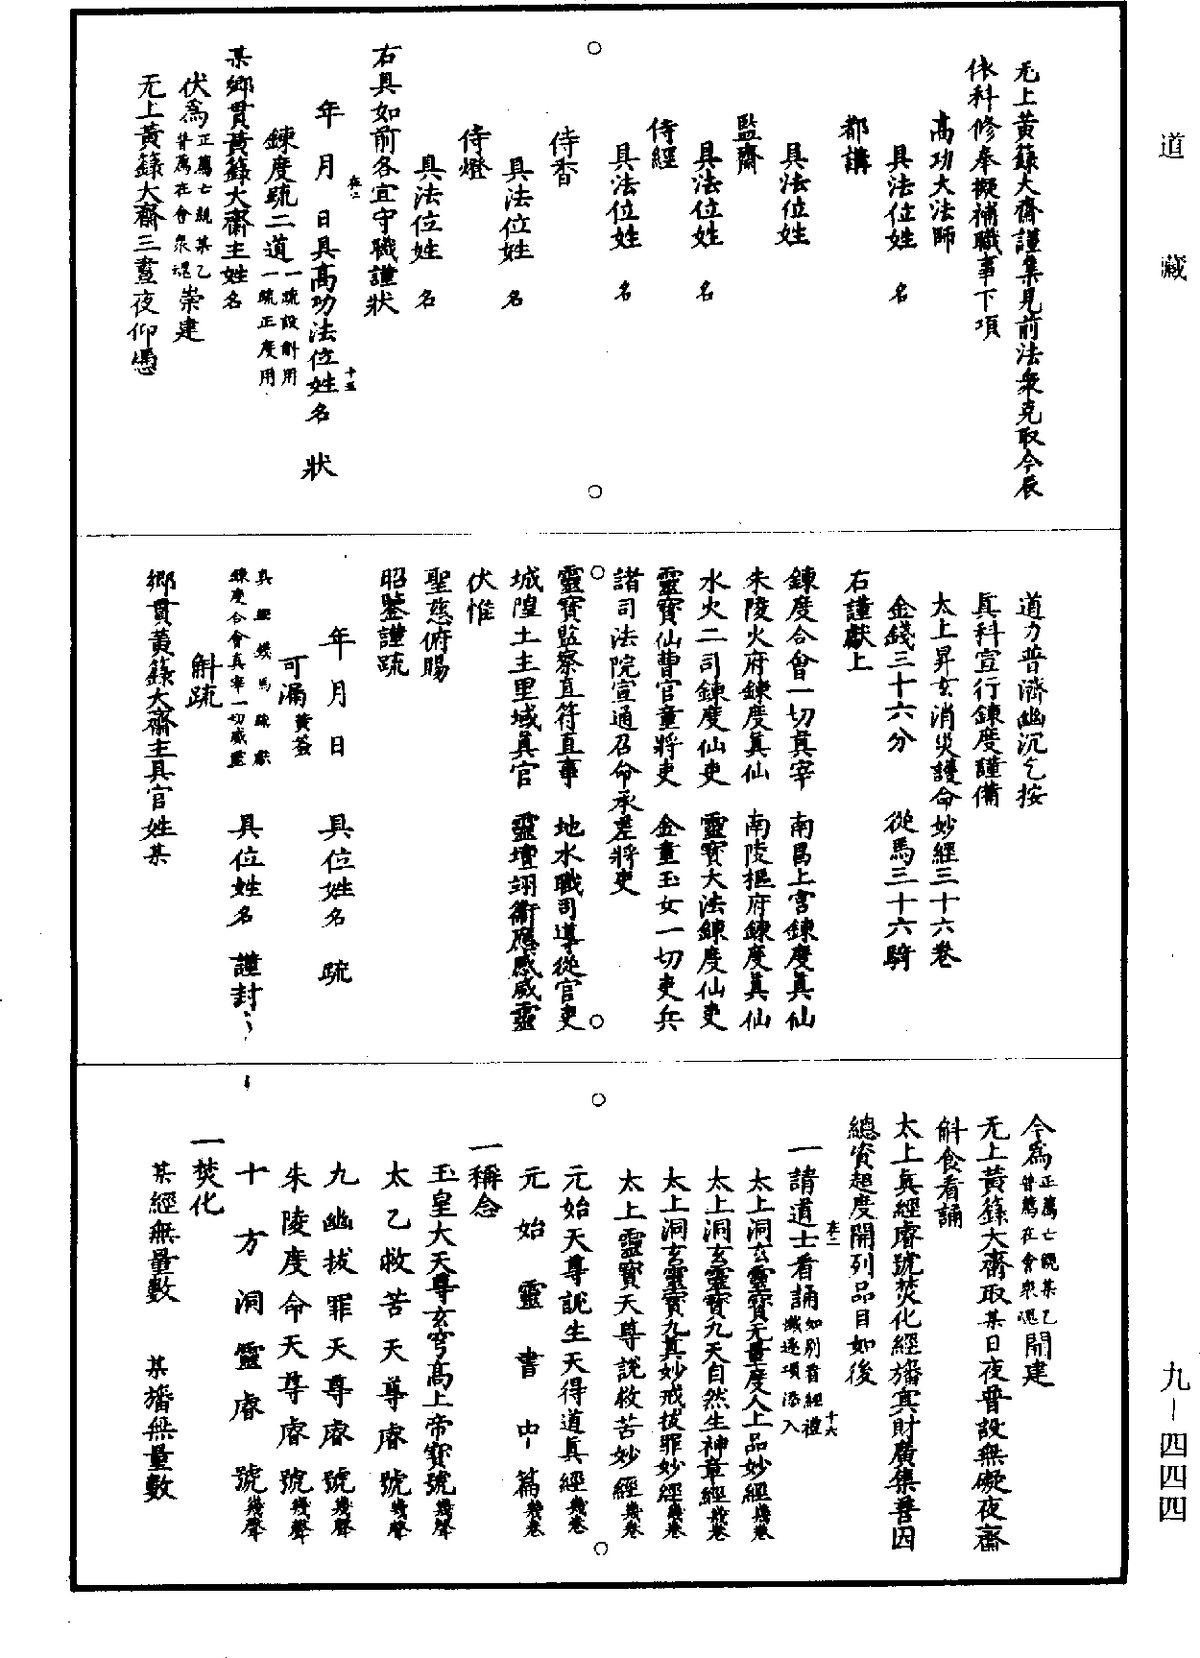 道藏
无上黃籙大齋謹集見前法衆克取今辰
依科修奉擬補職事下項
高功大法師
具法位姓 名
都講
具法位姓
監齋
具法位姓 名
侍經
具法位姓 名
侍香
具法位姓 名
侍燈
具法位姓 名
右具如前各宜守職謹狀
年 月 日具高功法位姓名 狀
十五
鍊度疏二道一疏設斛用一疏正度用
某鄉貫黃籙大齋主姓名
伏爲正薦亡親某乙普薦在會衆魂崇建
无上黃籙大齋三晝夜仰憑
道力普濟幽沉乞按
眞科宣行鍊度謹備
太上昇玄消災護命妙經三十六卷
金錢三十六分 從馬三十六騎
右謹獻上
鍊度合會一切眞宰 南昌上宮鍊度眞仙
朱陵火府鍊度眞仙 南陵樞府鍊度眞仙
水火二司鍊度仙吏 靈寶大法鍊度仙吏
靈寶仙曹官童將吏 金童玉女一切吏兵
諸司法院宣通召命承差將吏
靈寶監察直符直事 地水職司導從官吏
城隍土主里域眞官 靈壇翊衛應感威靈
伏惟
聖慈俯賜
昭鑒謹疏
年 月 日 具位姓名 疏
可漏黃簽
眞經錢馬疏獻
鍊度合會眞宰一切威靈 具位姓名 謹封
斛疏
鄉貫黃籙大齋主具官姓某
今爲正薦亡親某乙普薦在會衆魂開建
无上黃籙大齋取某日夜普設無礙夜齋
斛食看誦
太上眞經睿號焚化經旛寘財廣集善因
總資超度開列品目如後
一請道士看誦如别看經禮懺逐項添入
十六
太上洞玄靈寶无量度人上品妙經幾卷
太上洞玄靈寶九天自然生神章經幾卷
太上洞玄靈寶九眞妙戒拔罪妙經幾卷
太上靈寶天尊說救苦妙經幾卷
元始天尊說生天得道眞經幾卷
元始靈書中篇幾卷
一稱念
玉皇大天尊玄穹高上帝寶號幾聲
太乙救苦天尊睿號幾聲
九幽拔罪天尊睿號幾聲
朱陵度命天尊睿號幾聲
十方洞靈睿號幾聲
一焚化
某經無量數 某旛無量數
九－四四四